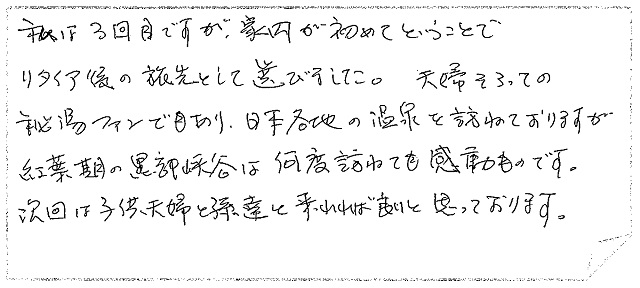 私は3回目ですが、家内が初めてということで
リタイア後の旅先として選びました。 夫婦そろっての
秘湯ファンであり、日本各地の温泉を訪ねておりますが
紅葉期の黒部峡谷は何度訪ねても感動ものです。
次回は子供夫婦と孫達と来れれば良いと思っております。